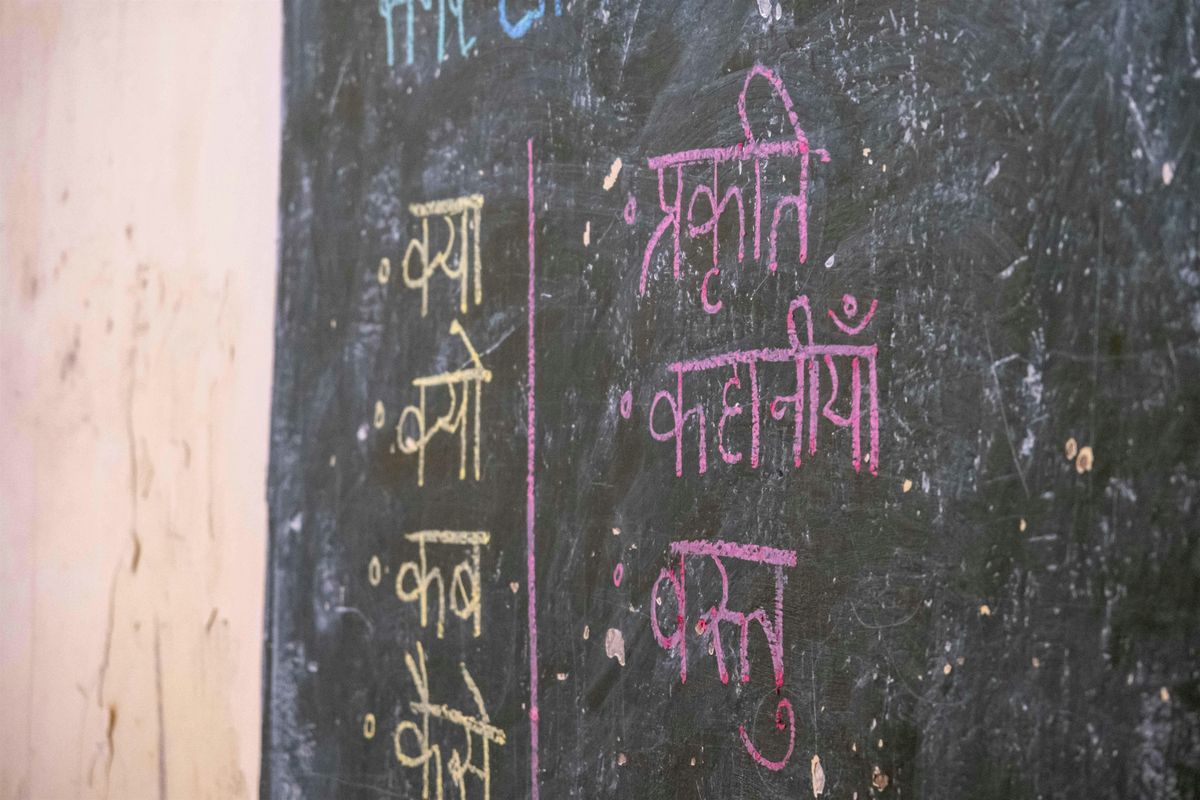 क्या
क्यो
कब
कैसे
प्रकृति
कहानीयाँ
वस्तु